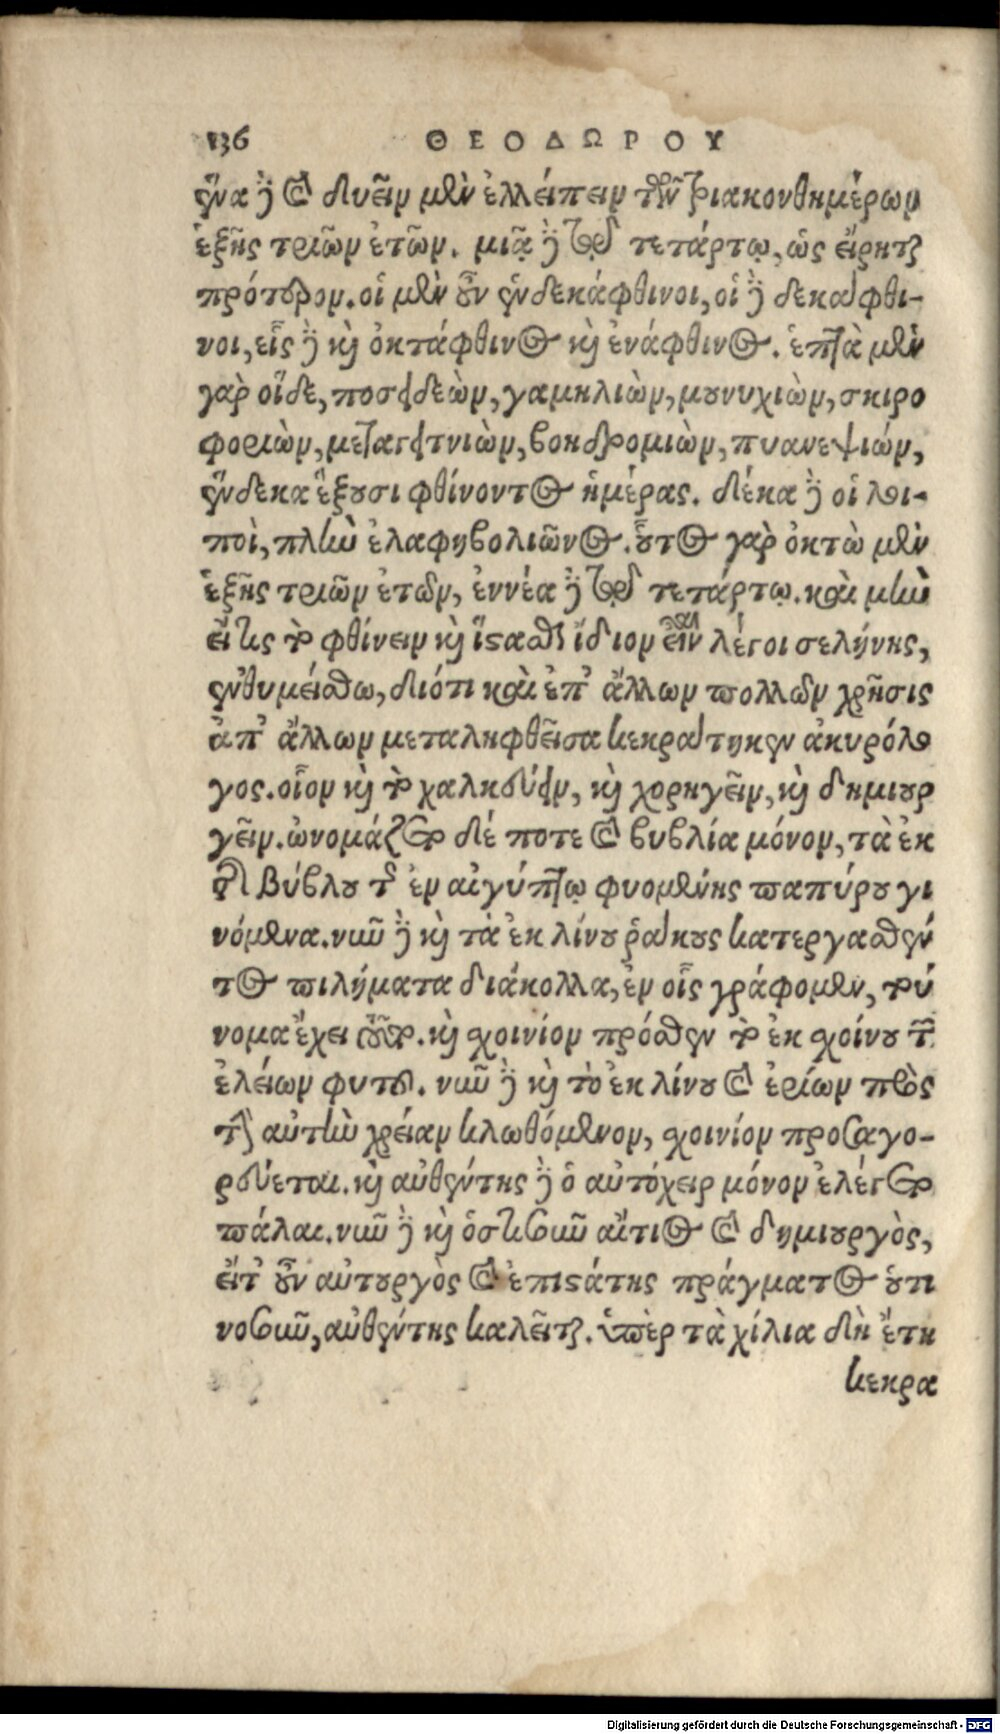 136 ΘΕΟΔΩΡΟΥ
ἕνα δὲ καὶ δυεῖν μὲν ἐλλείπειν τῶν τριακονθημέρων
ἑξῆς τριῶν ἐτῶν. μιᾷ δὲ τῷ τετάρτῳ, ὡς εἴρηται
πρότερον. οἱ μὲν οὖν ἑνδεκάφθινοι, οἱ δὲ δεκαφθι-
νοι, εἷς δὲ καὶ ὀκτάφθινος καὶ ἐνάφθινος. ἑπτὰ μὲν
γὰρ οἵδε, ποσειδεὼν, γαμηλιὼν, μουνυχιὼν, σκιρο
φοριὼν, μεταγειτνιὼν, βοηδρομιὼν, πυανεψιών,
ἕνδεκα ἕξουσι φθίνοντος ἡμέρας. δέκα δὲ οἱ λοι-
ποὶ, πλὴν ἐλαφηβολιῶνος. οὗτος γὰρ ὀκτὼ μὲν
ἑξῆς τριῶν ἐτῶν, ἐννέα δὲ τῷ τετάρτῳ. καὶ μὴν
εἴ τις τὸ φθίνειν καὶ ἵστασθαι ἴδιον εἶναι λέγοι σελήνης,
ἐνθυμείσθω, διότι καὶ ἐπ' ἄλλων πολλῶν χρῆσις
ἀπ' ἄλλων μεταληφθεῖσα κεκράτηκεν ἀκυρόλο
γος. οἷον καὶ τὸ χαλκεύειν, καὶ χορηγεῖν, καὶ δημιουρ
γεῖν. ὠνομάζετο δέ ποτε καὶ βυβλία μόνον, τὰ ἐκ
τῆς βύβλου τῆς ἐν αἰγύπτῳ φυομένης παπύρου γι
νόμενα. νῦν δὲ καὶ τὰ ἐκ λίνου ῥάκους κατεργασθέν
τος πιλήματα διάκολλα, ἐν οἷς γράφομεν, τού
νομα ἔχει τοῦτο. καὶ σχοινίον πρόσθεν τὸ ἐκ σχοίνου τοῦ
ἐλείων φυτοῦ. νῦν δὲ καὶ τὸ ἐκ λίνου καὶ ἐρίων πρὸς
τὴν αὐτὴν χρείαν κλωθόμενον, σχοινίον προσαγο-
ρεύεται. καὶ αὐθέντης δὲ ὁ αὐτόχειρ μόνον ἐλέγετο
πάλαι. νῦν δὲ καὶ ὁστισοῦν αἴτιος καὶ δημιουργὸς,
εἴτ' οὖν αὐτουργὸς καὶ ἐπιστάτης πράγματος οὑτι
νοσοῦν, αὐθέντης καλεῖται. ὑπὲρ τὰ χίλια δὴ ἔτη
κεκρα
Digitalisierung gefördert durch die Deutsche Forschungsgemeinschaft - DFG